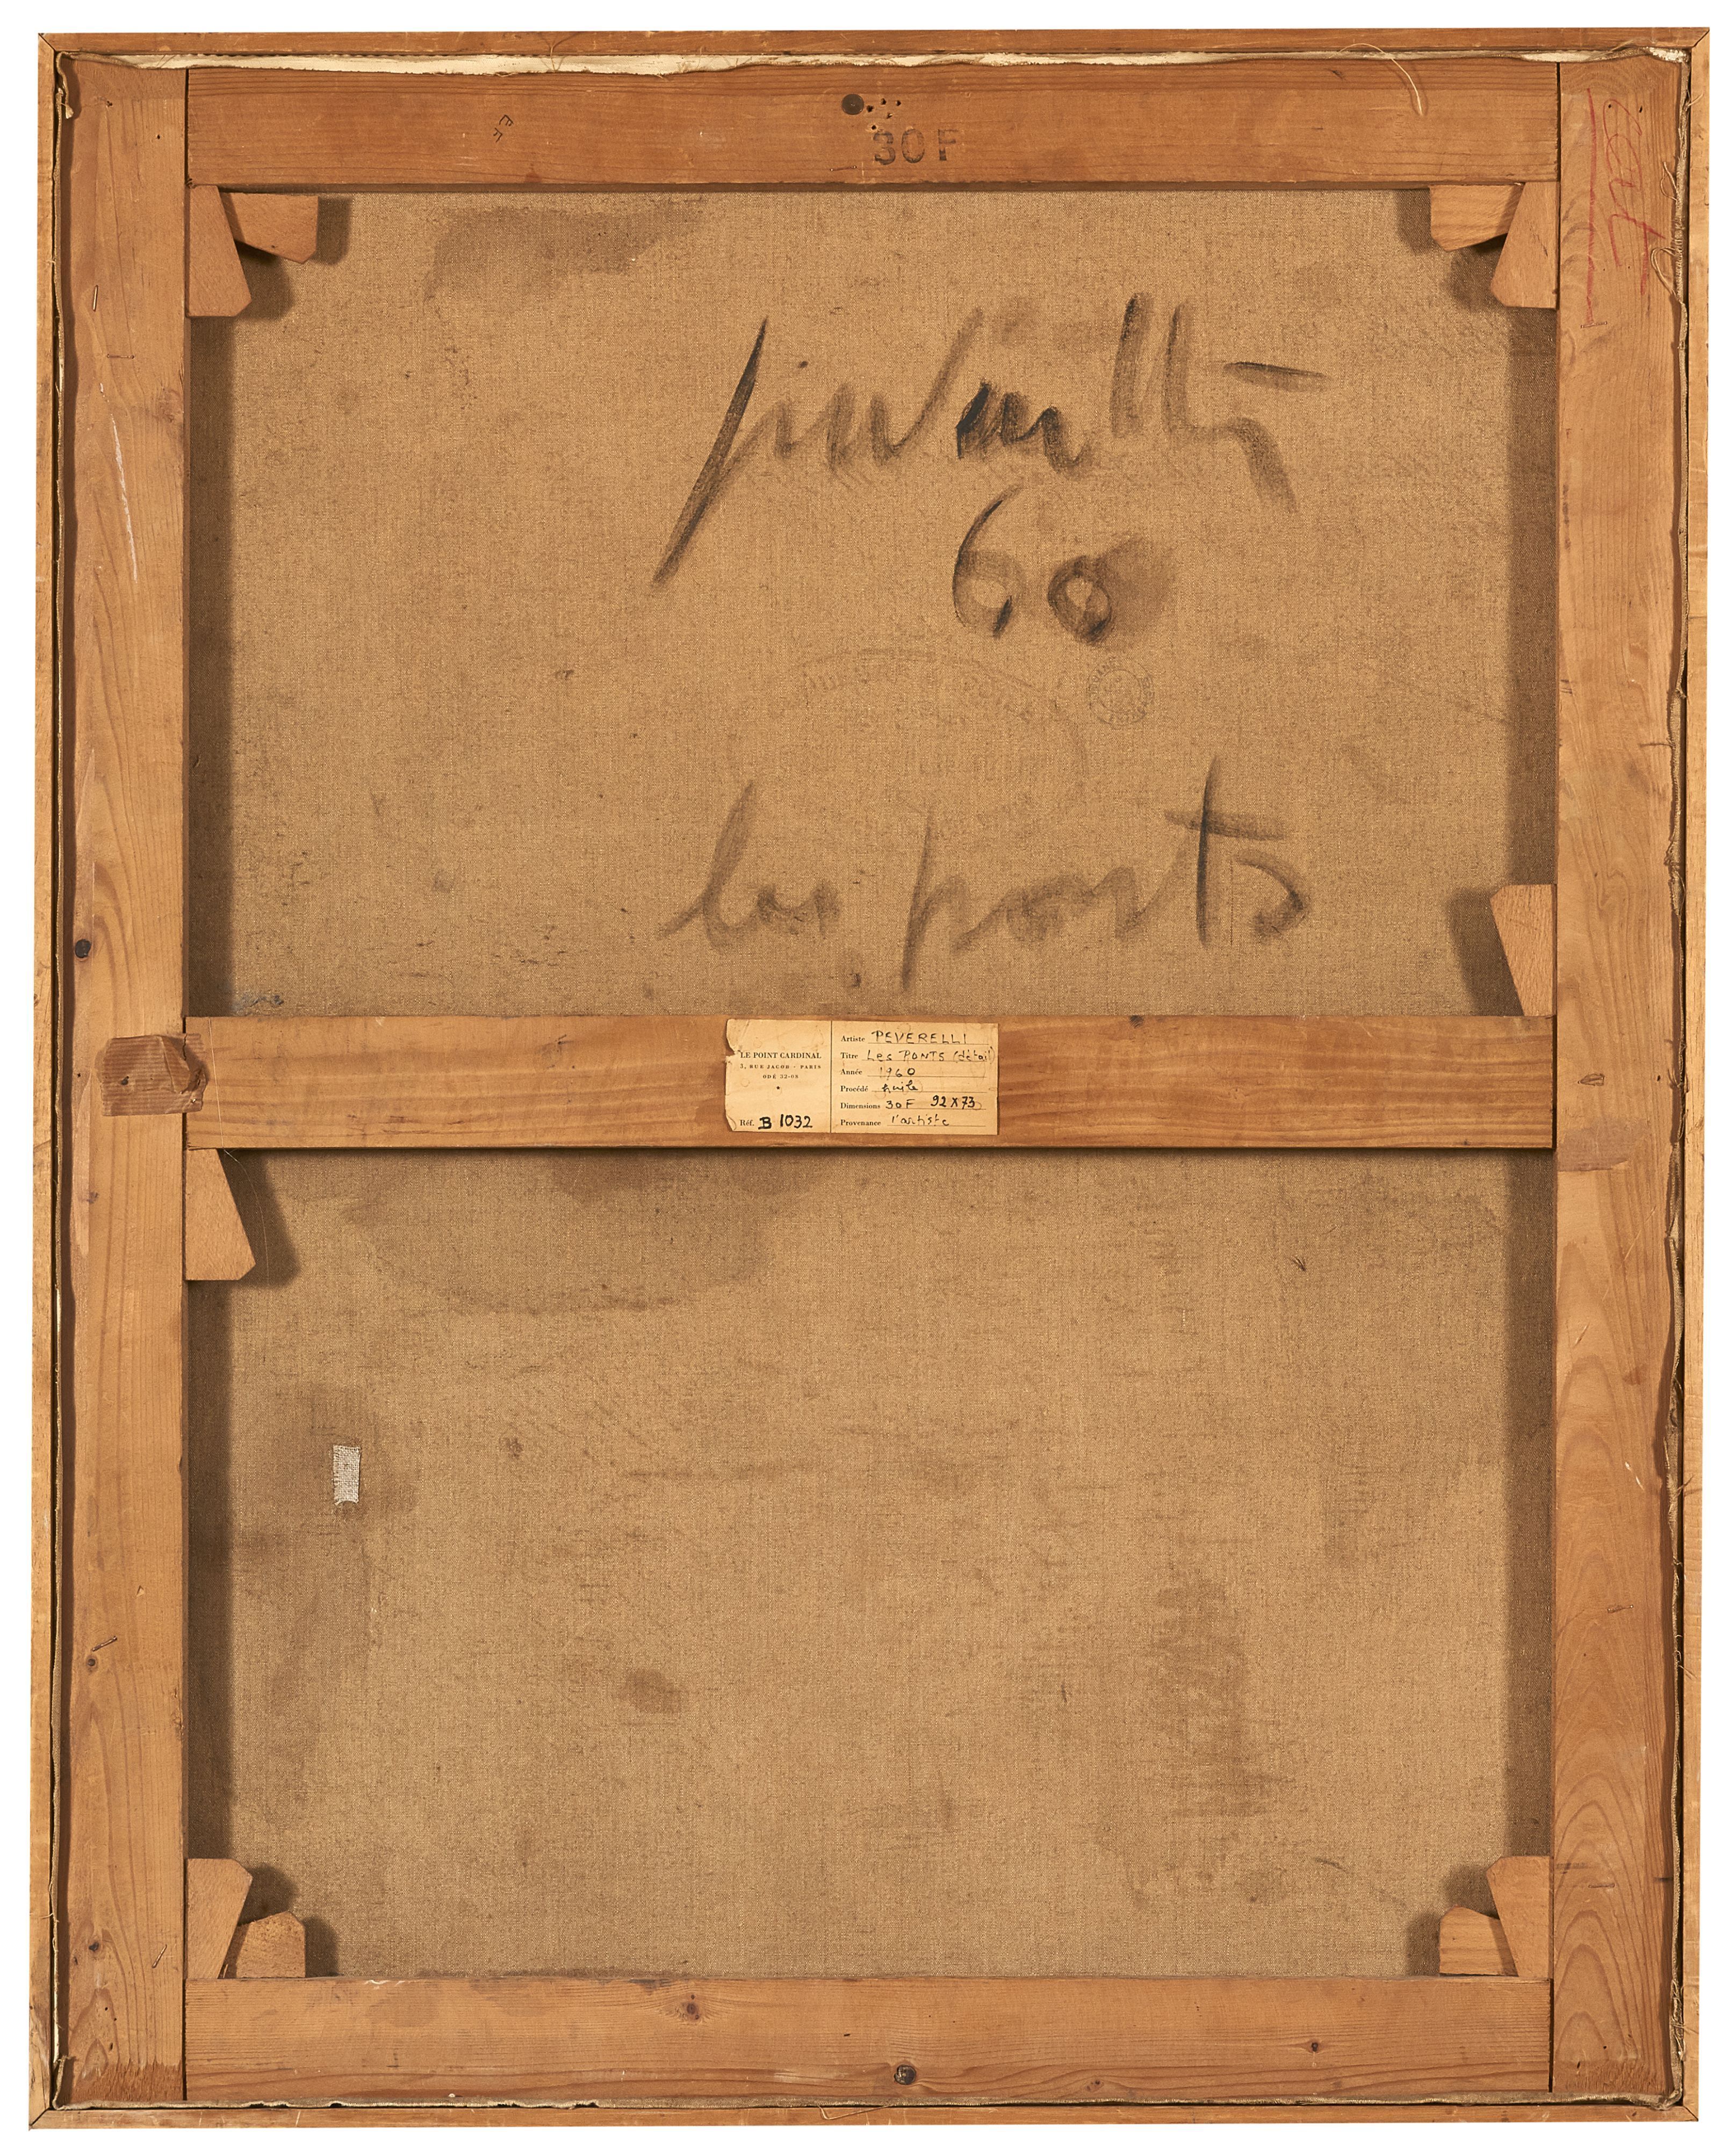 30 F
cat
peverelli
60
DOUANE
les ponts
LE POINT CARDINAL
3, RUE JACOB - PARIS
ODÉ 32-08
Réf. B 1032
Artiste PEVERELLI
Titre Les PONTS (détail)
Année 1960
Procédé huile
Dimensions 30F 92 x 73
Provenance l'artiste